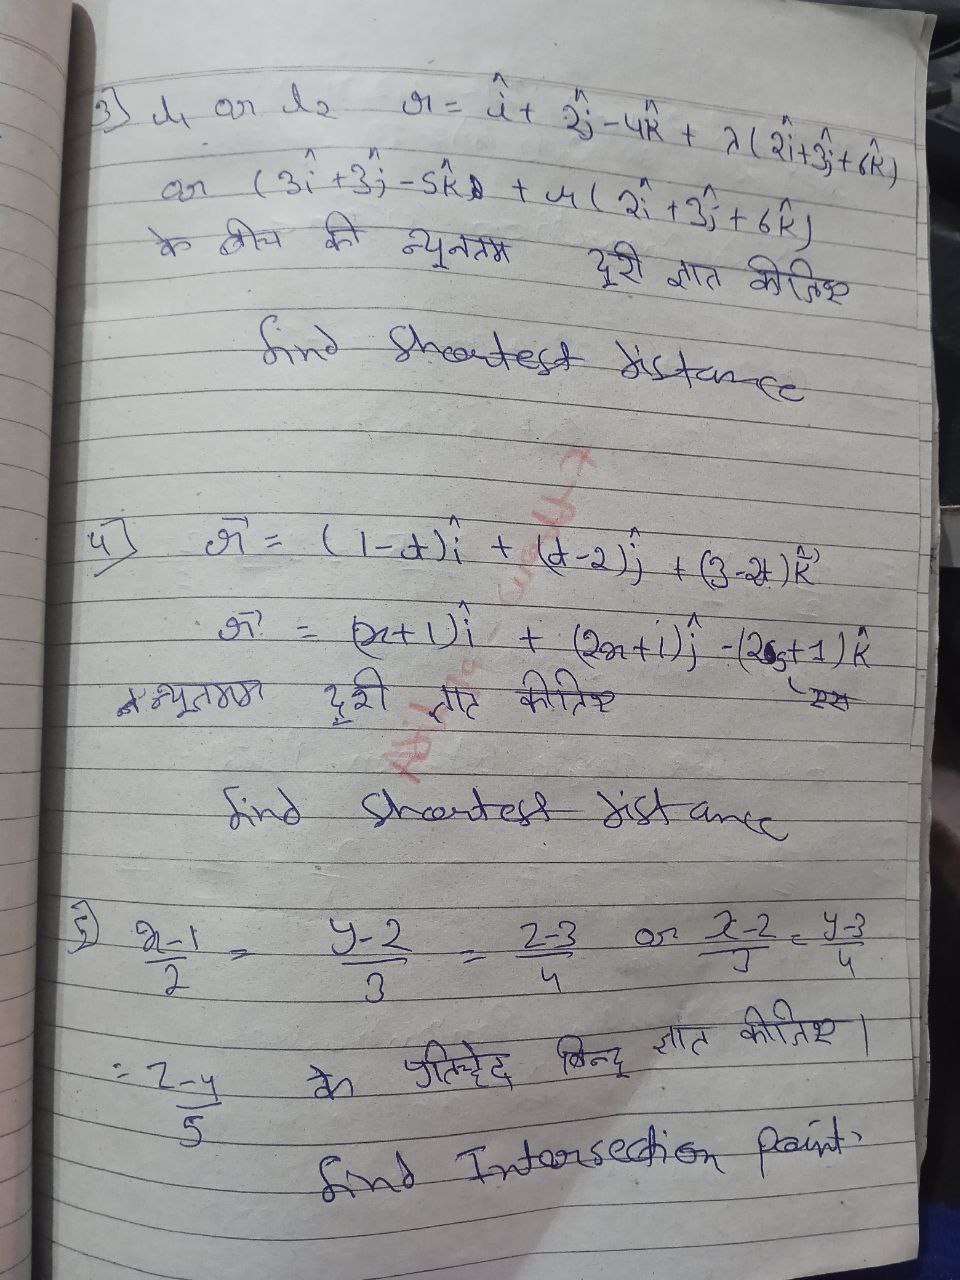 3] l₁ or l₂ r = î + 2ĵ - 4k̂ + λ(2î+3ĵ+6k̂)
or (3î+3ĵ-5k̂) + μ(2î+3ĵ+6k̂)
के बीच की न्यूनतम दूरी ज्ञात कीजिए
find shortest distance
4] r⃗ = (1-t)î + (t-2)ĵ + (3-2t)k̂
r⃗ = (s+1)î + (2s+1)ĵ - (2s+1)k̂
न्यूतमम दूरी ज्ञात कीजिए एस
find shortest distance
5] x-1/2 = y-2/3 = z-3/4 or x-2/3 = y-3/4
= z-4/5 के प्रतिच्छेद बिन्दू ज्ञात कीजिए।
find Intersection point